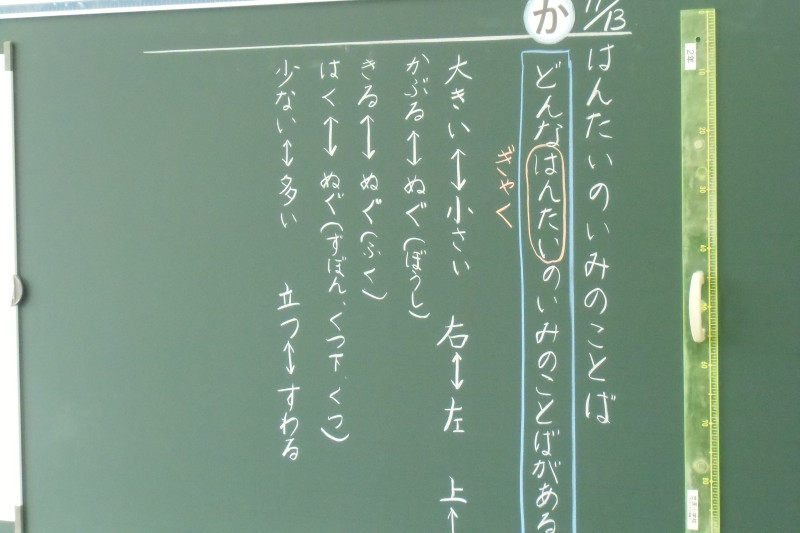 11/13
はんたいのいみのことば
か
どんなはんたいのいみのことばがある
ぎゃく
大きい↔小さい 右↔左 上↔
かぶる↔ぬぐ(ぼうし)
きる↔ぬぐ(ふく)
はく↔ぬぐ(ずぼん、くつ下、くつ)
少ない↔多い 立つ↔すわる
2年